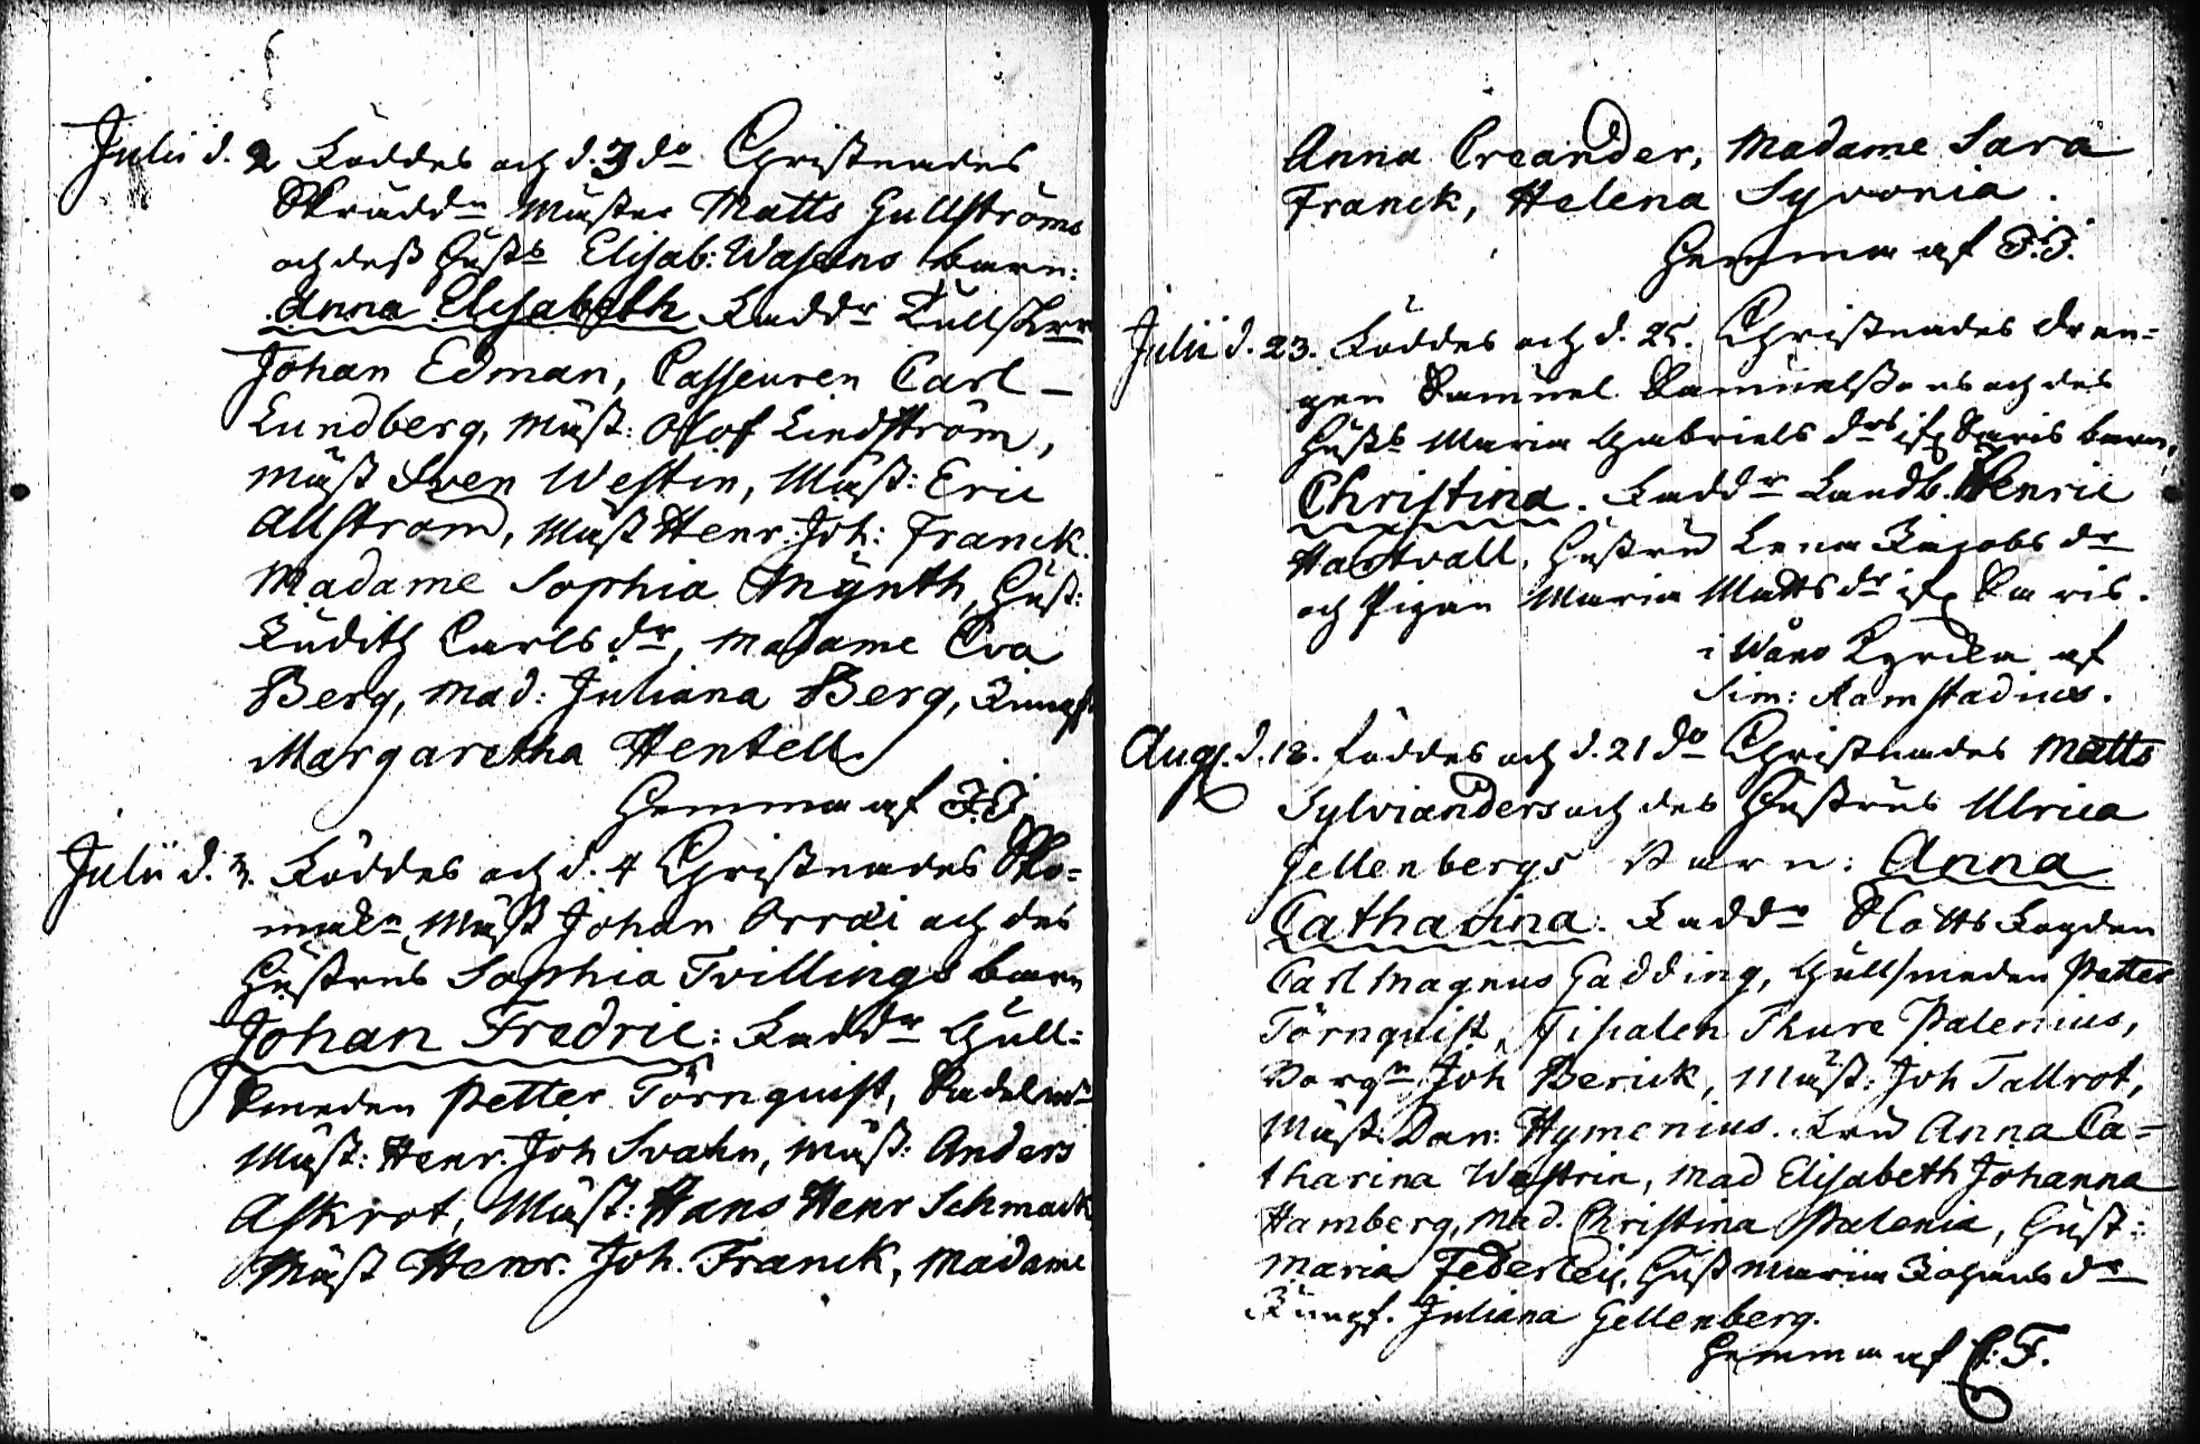 Julii d. 2 Föddes och d. 3 do Christnades
Skrädd:n Mäster Matts Gullströms
och dess Hust:s Elisab: Wasens barn:
Anna Elisabeth Fadd:r Tullskr
Johan Edman, Casseuren Carl
Lundberg, Mäst: Olof Lindström,
Mäst Sven Westin, Mäst: Eric
Allström, Mäst Henr. Joh: Franck.
Madame Sophia Mynth, Hust:
Judith Carls dr, Madame Eva
Berg, Mad: Juliana Berg, Jungf
Margaretha Hentell
Hemma af J.J.
Julii d. 3. Föddes och d. 4 Christnades Sko=
mak:n Mäst Johan Orræi och des
Hustrus Sophia Tvillings barn
Johan Fredric: Fadd:r Gull=
smeden Petter Törnquist, Sadelm
Mäst: Henr. Joh Svahn, Mäst: Anders
Askrot, Mäst: Hans Henr Schmack
Mäst Henr. Joh. Franck, Madame
Anna Creander, Madame Sara
Franck, Helena Syvonia.
Hemma af J.J.
Julii d. 23. Föddes och d. 25. Christnades dren=
gen Samuel Samuelssons och des
Hust:s Maria Gabriels drs ifr Saris barn,
Christina. Fadd:r Landb. Henric
Hartvall, Hustru Lena Jacobs dr
och Pigan Maria Matts dr ifr Saris.
i Wånå Kyrcka af
Sim: Ramstadius.
Aug. d. 18. föddes och d. 21 do Christnades Matts
Sylvianders och des Hustrus Ulrica
Gellenbergs Barn: Anna
Catharina. Fadd:r Slotts Fogden
Carl Magnus Gadding, Gullsmeden Petter
Törnquist, Fiscalen Thure Palenius,
Borg:n Joh Berick, Mäst: Joh Tallrot,
Mäst: Dan: Hymenius. Fru Anna Ca=
tharina Westrin, Mad Elisabeth Johanna
Hamberg, Mad. Christina Palenia, Hust:
Maria Federley, Hust Maria Johans dr
Jungf. Juliana Gellenberg.
Hemma af C: F.